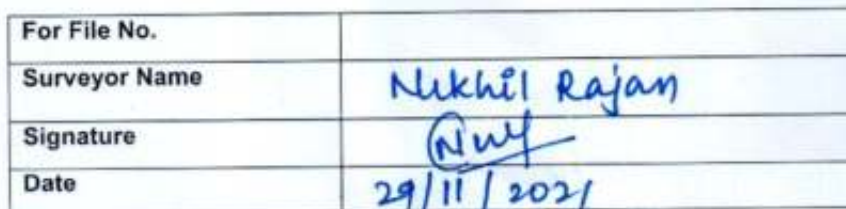 For File No.
Surveyor Name Nikhil Rajan
Signature
Date 29/11/2021